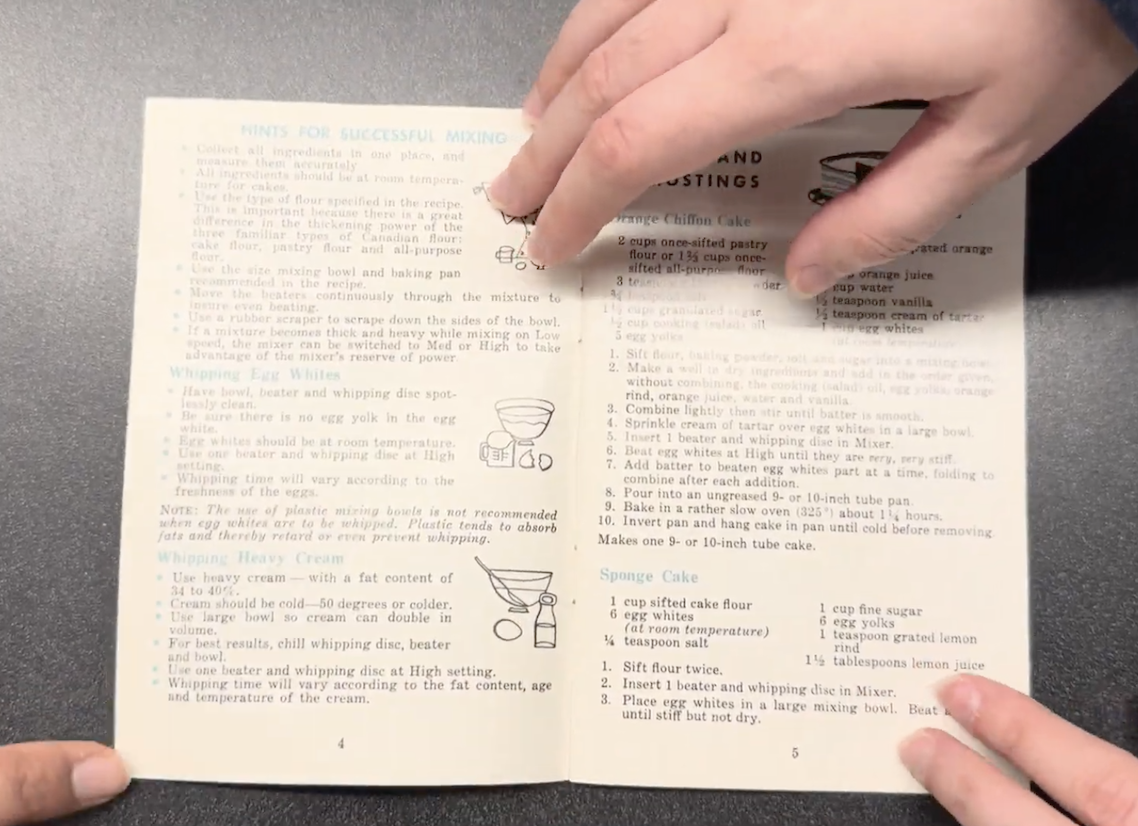 HINTS FOR SUCCESSFUL MIXING
Collect all ingredients in one place, and
measure them accurately
All ingredients should be at room tempera-
ture for cakes.
Use the type of flour specified in the recipe.
This is important because there is a great
difference in the thickening power of the
three familiar types of Canadian flour:
cake flour, pastry flour and all-purpose
flour.
Use the size mixing bowl and baking pan
recommended in the recipe.
Move the beaters continuously through the mixture to
insure even beating.
Use a rubber scraper to scrape down the sides of the bowl.
If a mixture becomes thick and heavy while mixing on Low
speed, the mixer can be switched to Med or High to take
advantage of the mixer's reserve of power.
Whipping Egg Whites
Have bowl, beater and whipping disc spot-
lessly clean.
Be sure there is no egg yolk in the egg
white.
Egg whites should be at room temperature.
Use one beater and whipping disc at High
setting.
Whipping time will vary according to the
freshness of the eggs.
NOTE: The use of plastic mixing bowls is not recommended
when egg whites are to be whipped. Plastic tends to absorb
fats and thereby retard or even prevent whipping.
Whipping Heavy Cream
Use heavy cream — with a fat content of
34 to 40%.
Cream should be cold—50 degrees or colder.
Use large bowl so cream can double in
volume.
For best results, chill whipping disc, beater
and bowl.
Use one beater and whipping disc at High setting.
Whipping time will vary according to the fat content, age
and temperature of the cream.
4
AND
Orange Chiffon Cake
2 cups once-sifted pastry
flour or 1¾ cups once-
sifted all-purpose flour
3
1½ cups granulated sugar
½ cup cooking (salad) oil
5 egg yolks
orange
orange juice
cup water
½ teaspoon vanilla
½ teaspoon cream of tartar
1 cup egg whites
(at room temperature)
1. Sift flour, baking powder, salt and sugar into a mixing bowl.
2. Make a well in dry ingredients and add in the order given,
without combining, the cooking (salad) oil, egg yolks, orange
rind, orange juice, water and vanilla.
3. Combine lightly then stir until batter is smooth.
4. Sprinkle cream of tartar over egg whites in a large bowl.
5. Insert 1 beater and whipping disc in Mixer.
6. Beat egg whites at High until they are very, very stiff.
7. Add batter to beaten egg whites part at a time, folding to
combine after each addition.
8. Pour into an ungreased 9- or 10-inch tube pan.
9. Bake in a rather slow oven (325°) about 1¼ hours.
10. Invert pan and hang cake in pan until cold before removing.
Makes one 9- or 10-inch tube cake.
Sponge Cake
1 cup sifted cake flour
6 egg whites
(at room temperature)
¼ teaspoon salt
1 cup fine sugar
6 egg yolks
1 teaspoon grated lemon
rind
1½ tablespoons lemon juice
1. Sift flour twice.
2. Insert 1 beater and whipping disc in Mixer.
3. Place egg whites in a large mixing bowl. Beat
until stiff but not dry.
5